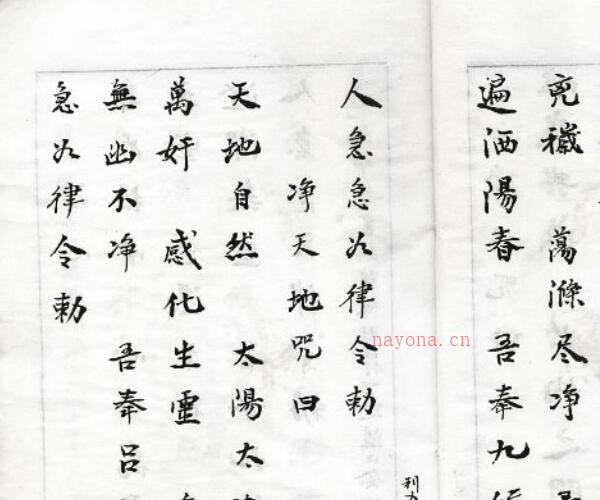 穢 蕩滌尽净
遍洒陽春 吾奉九
利
人急急如律令勅
净天地咒曰
天地自然 太陽太
萬奸 感化生靈
無幽不净 吾奉呂
急如律令勅
nayona.cn